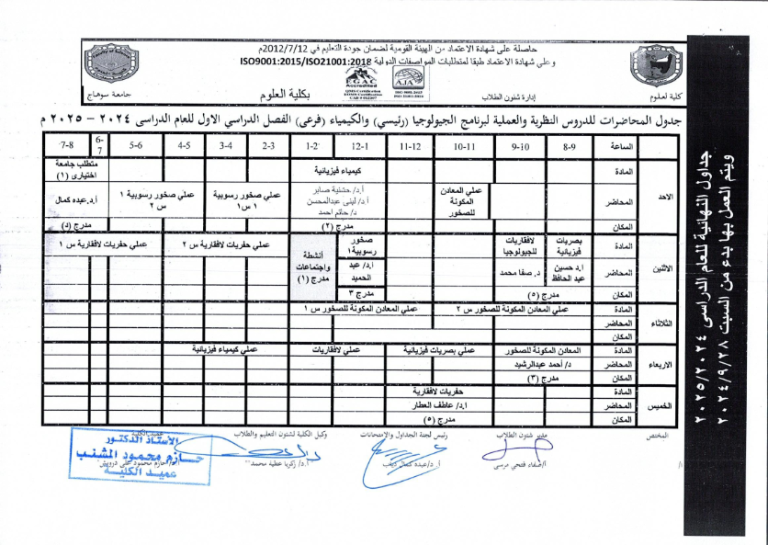 حاصلة على شهادة الاعتماد من الهيئة القومية لضمان جودة التعليم في 2012/7/12م
وعلى شهادة الاعتماد طبقا لمتطلبات المواصفات الدولية ISO9001:2015/ISO21001:2018
EGAC
Accredited
AJA
كلية العلوم
إدارة شئون الطلاب
بكلية العلوم
جامعة سوهاج
جدول المحاضرات للدروس النظرية والعملية لبرنامج الجيولوجيا (رئيسي) والكيمياء (فرعى) الفصل الدراسي الاول للعام الدراسى ٢٠٢٤ – ٢٠٢٥ م
الساعة 8-9 9-10 10-11 11-12 12-1 1-2 2-3 3-4 4-5 5-6 6-7 7-8
الاحد
المادة
كيمياء فيزيائية
متطلب جامعة اختيارى (١)
المحاضر
عملي المعادن المكونة للصخور
أ.د/ حشنية صابر
أ.د/ لبنى عبدالمحسن
د/ حاتم أحمد
عملي صخور رسوبية ١ س ١
عملي صخور رسوبية ١ س ٢
أ.د.عبده كمال
المكان
مدرج (٢)
مدرج (د)
الاثنين
المادة
بصريات فيزيائية
لافقاريات للجيولوجيا
صخور رسوبية١
أنشطة واجتماعات مدرج (١)
عملي حفريات لافقارية س ٢
عملي حفريات لافقارية س ١
المحاضر
ا.د حسين عبد الحافظ
د. صفا محمد
ا.د/ عيد الحميد
المكان
مدرج (٥)
مدرج ٣
الثلاثاء
المادة
عملي المعادن المكونة للصخور س ٢
عملي المعادن المكونة للصخور س ١
المحاضر
المكان
الاربعاء
المادة
المعادن المكونة للصخور
عملي بصريات فيزيائية
عملي لافقاريات
عملي كيمياء فيزيائية
المحاضر
د/ أحمد عبدالرشيد
المكان
مدرج (٣)
الخميس
المادة
حفريات لافقارية
المحاضر
ا.د/ عاطف العطار
المكان
مدرج (٥)
المختص
مدير شئون الطلاب
رئيس لجنة الجداول والامتحانات
وكيل الكلية لشئون التعليم والطلاب
أ/صفاء فتحي مرسى
أ.د/ زكريا عطية محمد
الأستاذ الدكتور
حازم محمود المشنب
عميد الكلية
جداول النهائية للعام الدراسى ٢٠٢٥/٢٠٢٤
ويتم العمل بها بدء من السبت ٢٠٢٤/٩/٢٨